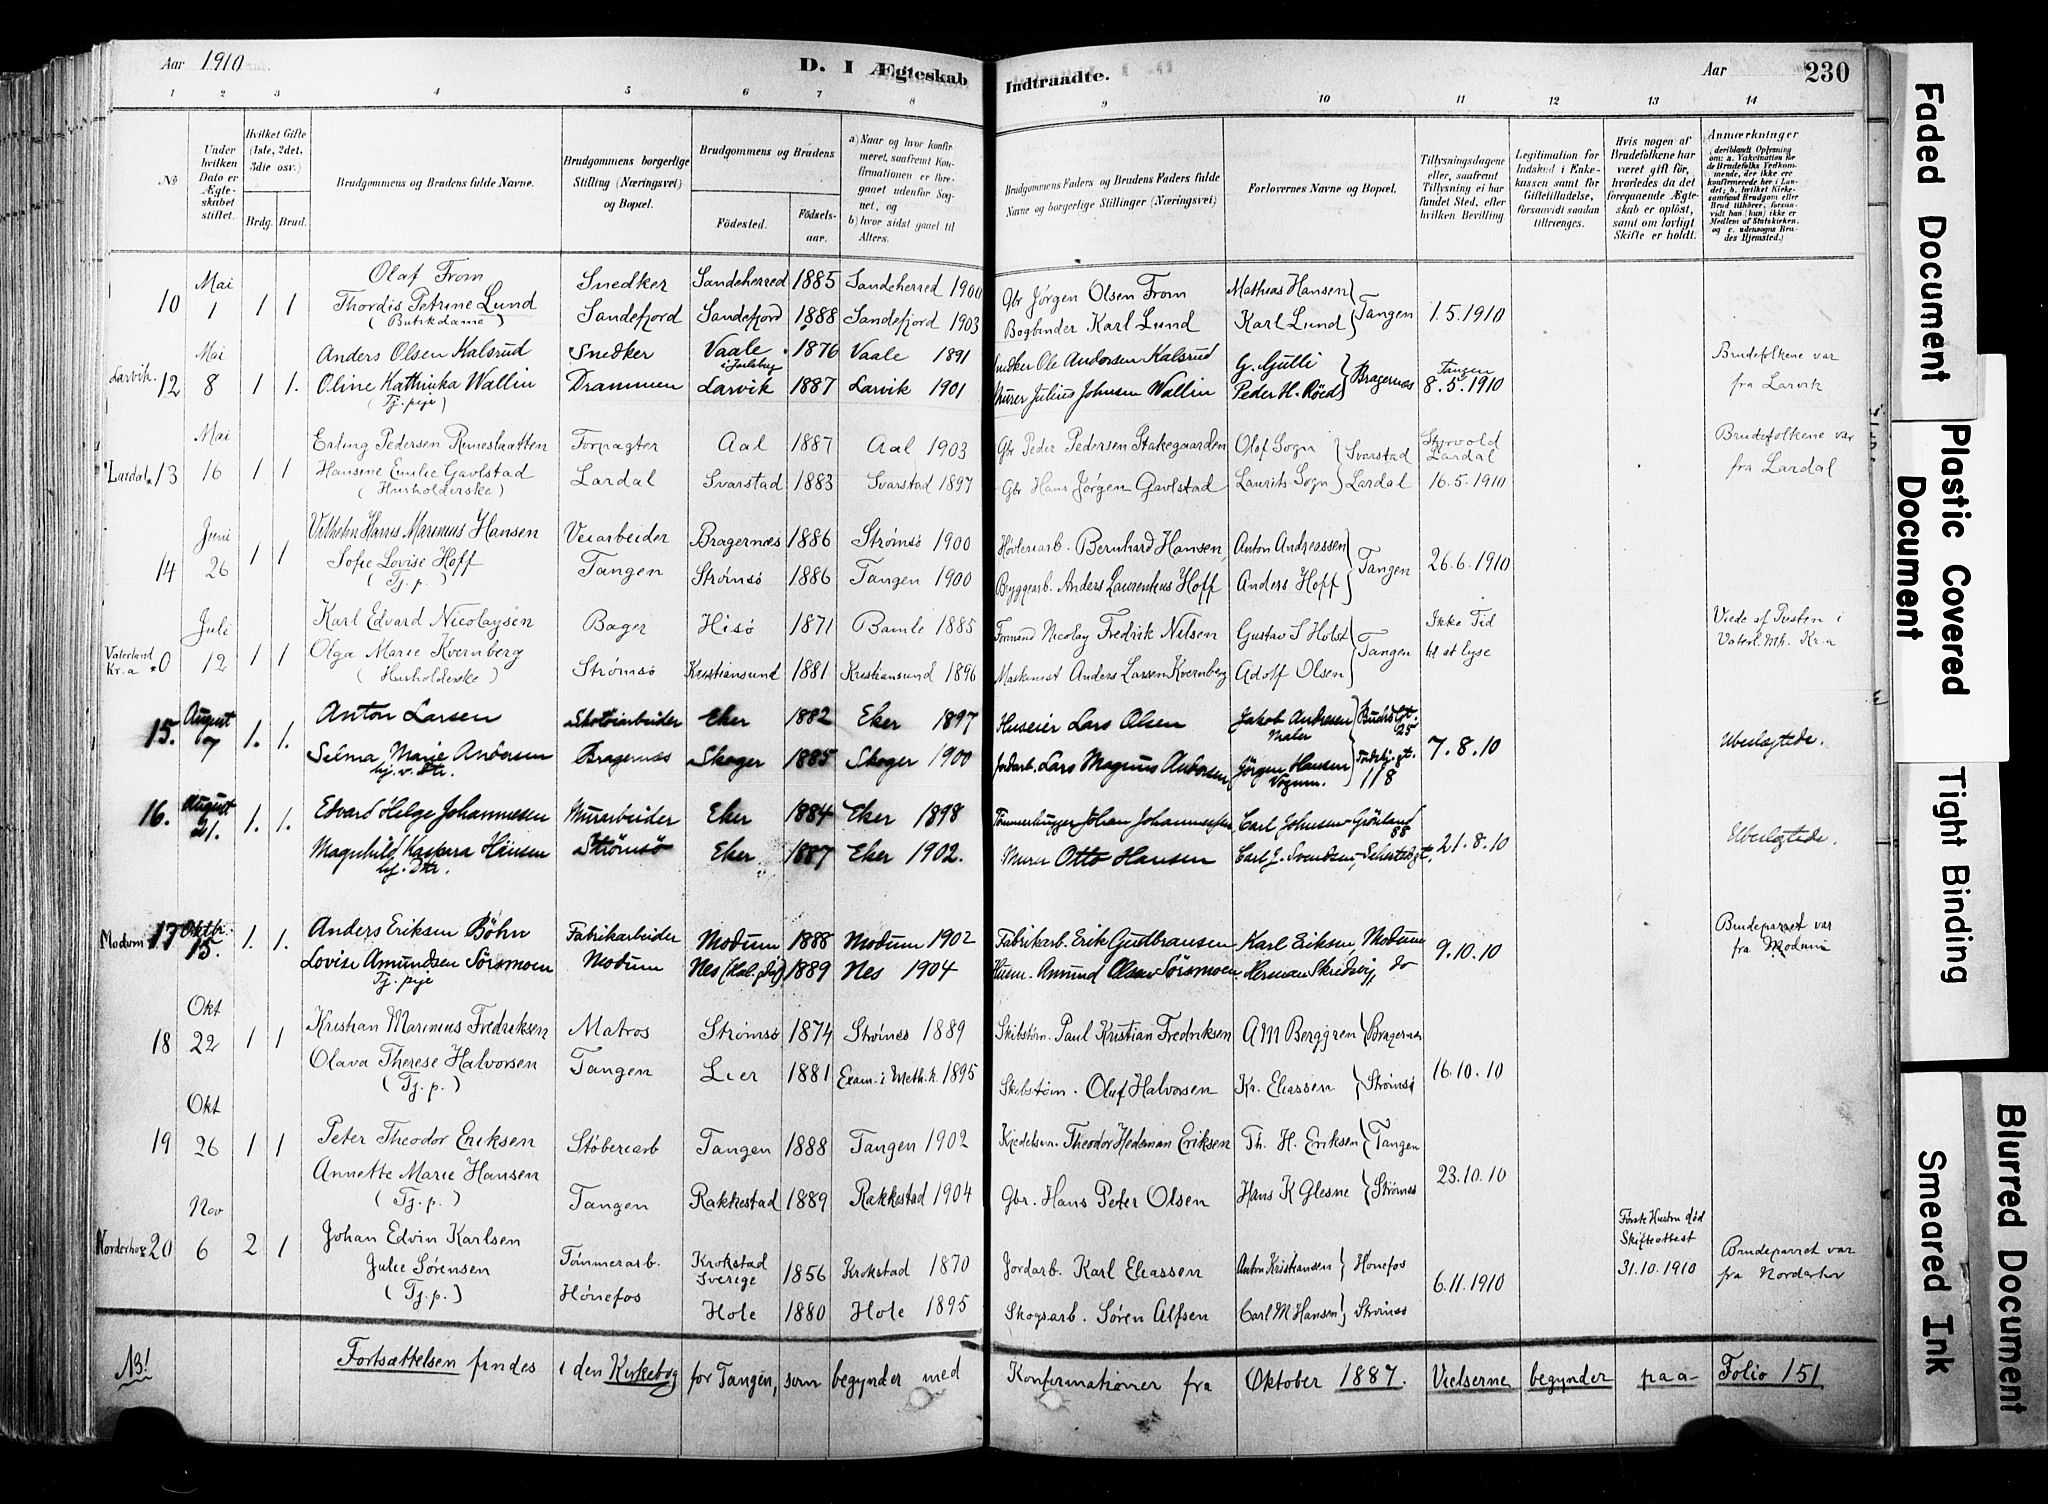 Aar 1910
D. I Ægteskab Indtraadte.
Aar 230
1 2 3 4 5 6 7 8 9 10 11 12 13 14
No
Under hvilken Dato er Ægteskabet stiftet.
Hvilket Gifte (1ste, 2det, 3die osv.)
Brdg. Brud.
Brudgommens og Brudens fulde Navne.
Brudgommens borgerlige Stilling (Næringsvei) og Bopæl.
Brudgommens og Brudens
Fødested.
Fødselsaar.
a) Naar og hvor konfirmeret, saafremt Konfirmationen er foregaaet udenfor Sognet, og
b) hvor sidst gaaet til Alters.
Brudgommens Faders og Brudens Faders fulde Navne og borgerlige Stillinger (Næringsvei)
Forlovernes Navne og Bopæl.
Tillysningsdagene eller, saafremt Tillysning ei har fundet Sted, efter hvilken Bevilling.
Legitimation for Indskud i Enkekassen samt for Giftetilladelse, forsaavidt saadan tiltrænges.
Hvis nogen af Brudefolkene har været gift før, hvorledes da det foregaaende Ægteskab er opløst, samt om lovligt Skifte er holdt.
Anmærkninger
(deriblandt Oplysning om: a. Vakcination for de Brudefolks Vedkommende, der ikke ere konfirmerede her i Landet; b. hvilket Kirkesamfund Brudgom eller Brud tilhører, forsaavidt han (hun) ikke er Medlem af Statskirken, og c. udensogns Brudes Hjemsted.)
10 Mai 1 1 1 Olaf From Snedker Sandeherred 1885 Sandeherred 1900 Gbr Jørgen Olsen From Mathias Hansen Tangen 1.5.1910
Thordis Petrine Lund Sandefjord Sandefjord 1888 Sandefjord 1903 Bogbinder Karl Lund Karl Lund
(Butikdame)
Larvik. 12 Mai 8 1 1. Anders Olsen Kalsrud Snedker Vaale i Jarlsberg 1876 Vaale 1891 Snedker Ole Andersen Kalsrud G. Gulli Bragernæs Tangen 8.5.1910 Brudefolkene var fra Larvik
Oline Kathinka Wallin Drammen Larvik 1887 Larvik 1901 Murer Julius Johnsen Wallin Peder H. Røed
(Tj. pige)
Lardal 13 Mai 16 1 1 Erling Pedersen Forpagter Aal 1887 Aal 1903 Gbr Peder Pedersen Stakegaarden Olof Sogn Svarstad Styrvold Lardal Brudefolkene var fra Lardal
Hansine Emilie Gavlstad Lardal Svarstad 1883 Svarstad 1897 Gbr Hans Jørgen Gavlstad Laurits Sogn Lardal 16.5.1910
(Husholderske)
14 Juni 26 1 1 Vilhelm Harris Marinius Hansen Veiarbeider Bragernæs 1886 Strømsø 1900 Høvleriarb. Bernhard Hansen Anton Andreassen Tangen 26.6.1910
Sofie Lovise Hoff Tangen Strømsø 1886 Tangen 1900 Bryggearb. Anders Laurentius Hoff Anders Hoff
(Tj. p.)
Vaterland Kr.a 0 Juli 12 1 1 Karl Edvard Nicolaysen Bager Hisø 1871 Bamle 1885 Formand Nicolay Fredrik Nilsen Gustav S Holst Tangen Ikke Tid til at lyse Viede af Presten i Vaterl. Mh. Kr.a
Olga Marie Kvernberg Strømsø Kristiansund 1881 Kristiansund 1896 Maskinist Anders Larsen Kvernberg Adolf Olsen
(Husholderske)
15. August 7 1. 1. Anton Larsen Skotøiarbeider Eker 1882 Eker 1897 Huseier Lars Olsen Jakob Andresen Maler 25 7.8.10 Ubeslægtede.
Selma Marie Andersen Bragernæs Skoger 1885 Skoger 1900 Jordarb. Lars Magnus Andersen Jörgen Hansen Vognm. 118
hj. v. Dtr.
16. August 21. 1. 1. Edvard Helge Johannesen Murarbeider Eker 1884 Eker 1898 Tømmerhugger Johan Johannessen Carl Johnsen Grönland 88 21.8.10 Ubeslægtede.
Magnhild Kaspara Hansen Strømsø Eker 1887 Eker 1902. Murer Otto Hansen Carl J. Svendsen
hj. Dtr.
Modum 17 Oktbr. 15. 1. 1. Anders Eriksen Böhn Fabrikarbeider Modum 1888 Modum 1902 Fabrikarb. Erik Gudbransen Karl Eriksen Modum 9.10.10 Brudeparret var fra Modum
Lovise Amundsen Sörsmoen Modum Nes 1889 Nes 1904 Husm. Amund Olsen Sörsmoen. Herman Skredsvig do
Tj. pige
18 Okt 22 1 1 Kristian Marinius Fredriksen Matros Strømsø 1874 Strømsø 1889 Skibstøm. Paul Kristian Fredriksen A M Berggren Bragernæs 16.10.10
Olava Therese Halvorsen Tangen Lier 1881 Exam. i Meth.k. 1895 Skibstøm. Oluf Halvorsen Kr. Eliassen Strømsø
(Tj. p.)
19 Okt 26 1 1 Peter Theodor Eriksen Støberiarb Tangen 1888 Tangen 1902 Kjedelsm. Theodor Hedeman Eriksen Th. H. Eriksen Tangen 23.10.10
Annette Marie Hansen Tangen Rakkestad 1889 Rakkestad 1904 Gbr. Hans Peter Olsen Hans K Glesne Strømsø
(Tj. p.)
Norderhov 20 Nov 6 2 1 Johan Edvin Karlsen Tømmerarb. Krokstad Sverige 1856 Krokstad 1870 Jordarb. Karl Eliassen Anton Kristiansen Hønefos 6.11.1910 Første Hustru død Skifteattest 31.10.1910 Brudeparret var fra Norderhov
Julie Sørensen Hønefos Hole 1880 Hole 1895 Skogsarb. Søren Alfsen Carl M Hansen Strømsø
(Tj. p.)
NB! Fortsættelsen findes i den Kirkebog for Tangen, som begynder med Konfirmationer fra Oktober 1887. Vielserne begynder paa Folio 151
Faded Document
Plastic Covered Document
Tight Binding
Blurred Document
Smeared Ink